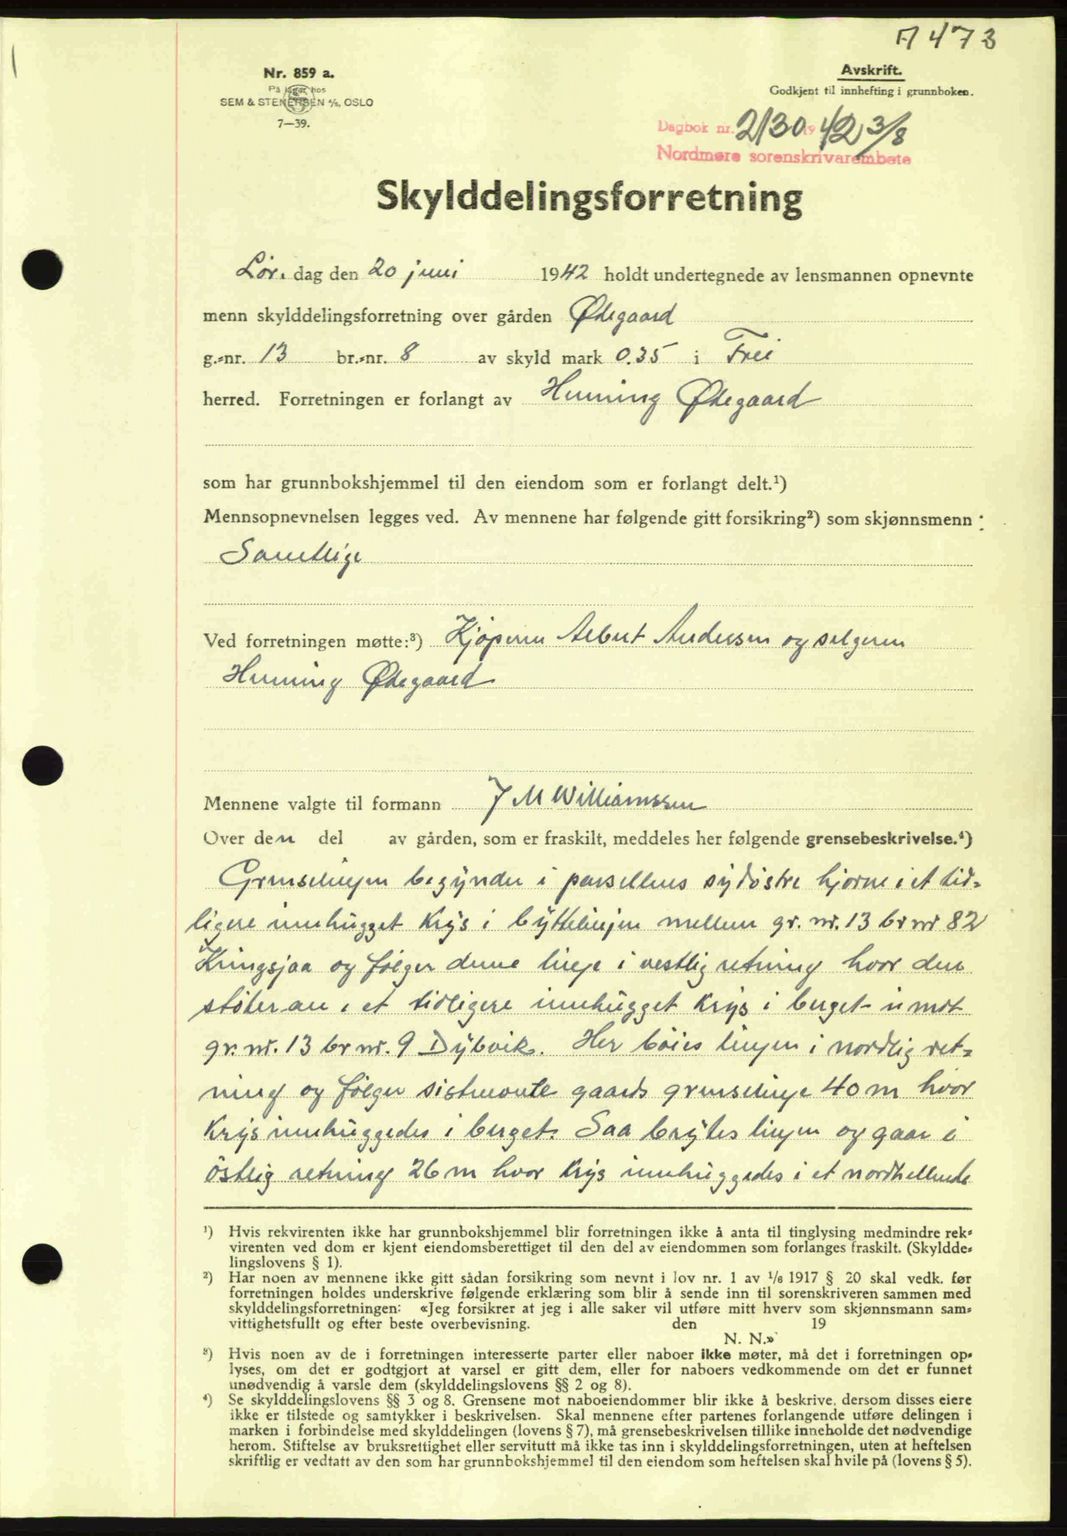 A 473
Nr. 859 a.
På lager hos
SEM & STENERSEN A/S, OSLO
7—39.
Avskrift.
Godkjent til innhefting i grunnboken.
Dagbok nr. 2130 1942 3/8
Nordmøre sorenskrivarembete
Skylddelingsforretning
Lør. dag den 20 juni 1942 holdt undertegnede av lensmannen opnevnte
menn skylddelingsforretning over gården Ødegaard
g.-nr. 13 br.-nr. 8 av skyld mark 0.35 i Frei
herred. Forretningen er forlangt av Henning Ødegaard
som har grunnbokshjemmel til den eiendom som er forlangt delt.¹)
Mennsopnevnelsen legges ved. Av mennene har følgende gitt forsikring²) som skjønnsmenn :
Samtlige
Ved forretningen møtte:³) Kjøperen Albert Andersen og selgeren
Henning Ødegaard
Mennene valgte til formann J M Williamssen
Over den del av gården, som er fraskilt, meddeles her følgende grensebeskrivelse.⁴)
Grenselinjen begynder i parsellens sydøstre hjørne i et tid-
ligere innhugget krys i byttelinjen mellem gr. nr. 13 br nr 82
Kringsjaa og følger denne linje i vestlig retning hvor den
støter an i et tidligere innhugget krys i berget imot
gr. nr. 13 br nr. 9 Dybvik. Her bøies linjen i nordlig ret-
ning og følger sistnevnte gaards grenselinje 40 m hvor
krys innhuggedes i berget. Saa brytes linjen og gaar i
østlig retning 26 m hvor krys innhuggedes i et nordhellende
¹) Hvis rekvirenten ikke har grunnbokshjemmel blir forretningen ikke å anta til tinglysing medmindre rek-
virenten ved dom er kjent eiendomsberettiget til den del av eiendommen som forlanges fraskilt. (Skyldde-
lingslovens § 1).
²) Har noen av mennene ikke gitt sådan forsikring som nevnt i lov nr. 1 av 1/6 1917 § 20 skal vedk. før
forretningen holdes underskrive følgende erklæring som blir å sende inn til sorenskriveren sammen med
skylddelingsforretningen: «Jeg forsikrer at jeg i alle saker vil utføre mitt hverv som skjønnsmann sam-
vittighetsfullt og efter beste overbevisning. den 19
N. N.»
³) Hvis noen av de i forretningen interesserte parter eller naboer ikke møter, må det i forretningen op-
lyses, om det er godtgjort at varsel er gitt dem, eller for naboers vedkommende om det er funnet
unødvendig å varsle dem (skylddelingslovens §§ 2 og 8).
⁴) Se skylddelingslovens §§ 3 og 8. Grensene mot naboeiendommer blir ikke å beskrive, dersom disses eiere
ikke er tilstede og samtykker i beskrivelsen. Skal mennene efter partenes forlangende utføre delingen i
marken i forbindelse med skylddelingen (lovens § 7), må grensebeskrivelsen tillike inneholde det nødvendige
herom. Stiftelse av bruksrettighet eller servitutt må ikke tas inn i skylddelingsforretningen, uten at heftelsen
skriftlig er vedtatt av den som har grunnbokshjemmel til den eiendom som heftelsen skal hvile på (lovens § 5).